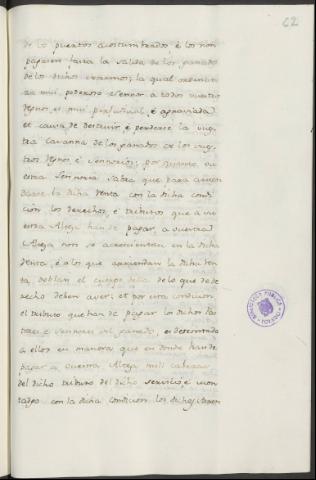 62
de los puertos acostumbrados, é los non
pagasen fasta la salida de los ganados
de los dichos extremos; la qual ordenan-
za mui poderoso Señor a todos vuestros
Reynos es mui perjudicial, é agraviada
et causa de destruir é perderse la vues-
tra Cavanna de los ganados de los vues-
tros Reynos, é Sennorios; por quanto vu-
estra Sennoria sabrá que para arren-
darse la dicha renta con la dicha condi-
ción los derechos, é tributos que á vu-
estra Alteza han de pagar, a vuestra
Alteza non se acrecientan en la dicha
renta, é á los que arriendan la dicha ren-
ta doblan el cuerpo della de lo que de de-
recho deben aver; et por esta condicion
el tributo que han de pagar los dichos Pas-
tores é Sennores del ganado, es descontado
a ellos en manera que en donde han de
pagar a vuestra Alteza mill cabezas
del dicho tributo del dicho servicio é mon-
tadgo con la dicha condición los dichos
BIBLIOTECA PUBLICA
TOLEDO